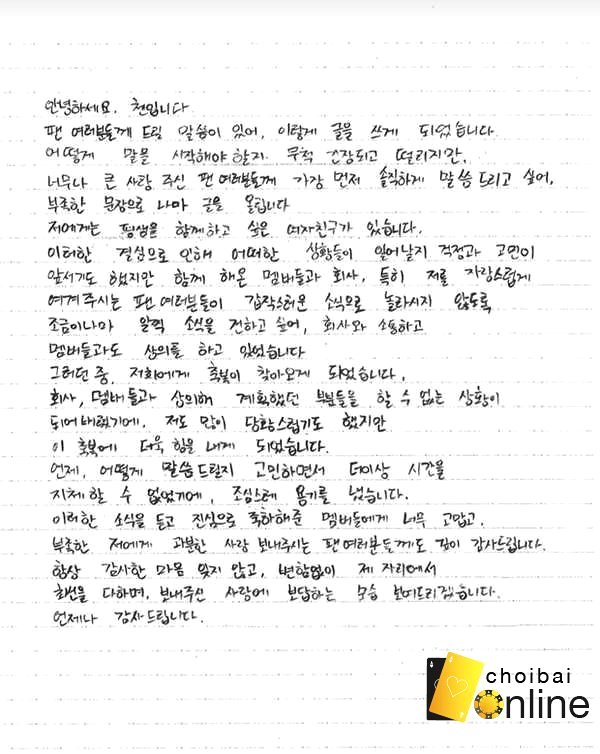 안녕하세요. 첸입니다
팬 여러분들께 드릴 말씀이 있어, 이렇게 글을 쓰게 되었습니다.
어떻게 말을 시작해야 할지 무척 긴장되고 떨리지만,
너무나 큰 사랑 주신 팬 여러분들께 가장 먼저 솔직하게 말씀드리고 싶어,
부족한 문장으로 나마 글을 올립니다
저에게는 평생을 함께하고 싶은 여자친구가 있습니다.
이러한 결심으로 인해 어떠한 상황들이 일어날지 걱정과 고민이
앞서기도 했지만 함께 해온 멤버들과 회사, 특히 저를 자랑스럽게
여겨주시는 팬 여러분들이 갑작스러운 소식으로 놀라시지 않도록
조금이나마 일찍 소식을 전하고 싶어, 회사와 소통하고
멤버들과도 상의를 하고 있었습니다
그러던 중, 저희에게 축복이 찾아오게 되었습니다.
회사, 멤버들과 상의해 계획했던 부분들을 할 수 없는 상황이
되어버렸기에, 저도 많이 당황스럽기도 했지만
이 축복에 더욱 힘을 내게 되었습니다.
언제, 어떻게 말씀드릴지 고민하면서 더이상 시간을
지체할 수 없었기에, 조심스레 용기를 냈습니다.
이러한 소식을 듣고 진심으로 축하해준 멤버들에게 너무 고맙고,
부족한 저에게 과분한 사랑 보내주시는 팬 여러분들께도 깊이 감사드립니다.
항상 감사한 마음 잊지 않고, 변함없이 제 자리에서
최선을 다하며, 보내주신 사랑에 보답하는 모습 보여드리겠습니다.
언제나 감사드립니다.
choibai
online